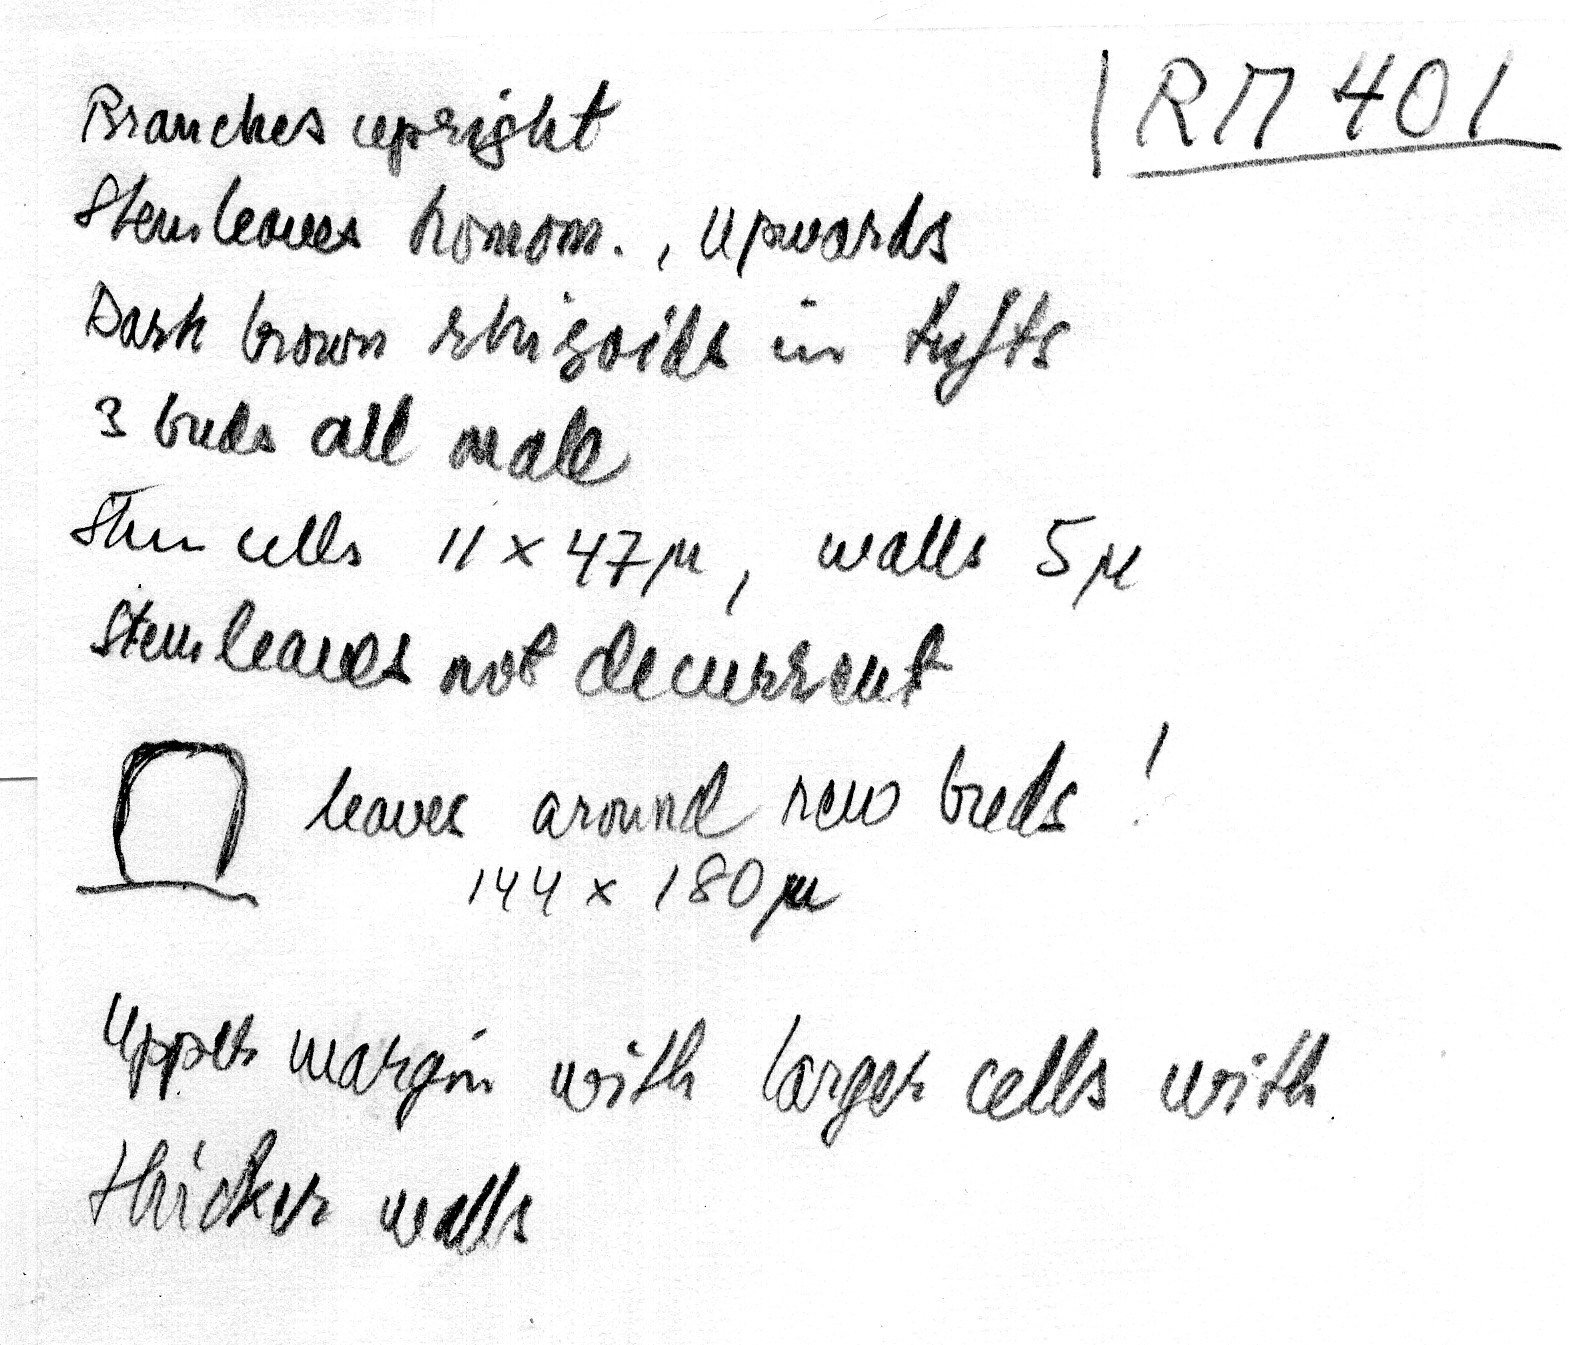 RM 401
Branches upright
Stem leaves homom., upwards
Dark brown rhizoids in tufts
3 buds all male
Stem cells 11 × 47 µ, walls 5 µ
Stem leaves not decurrent
leaves around new buds!
144 × 180 µ
Upper margin with larger cells with
thicker walls